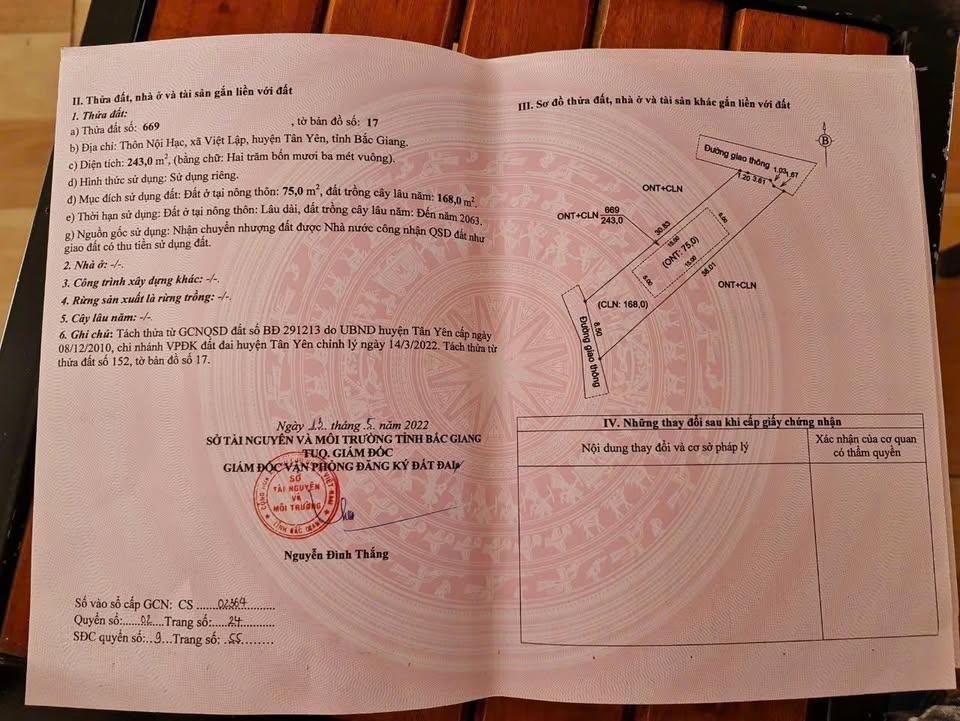 II. Thửa đất, nhà ở và tài sản gắn liền với đất
1. Thửa đất:
a) Thửa đất số: 669 , tờ bản đồ số: 17
b) Địa chỉ: Thôn Nội Hạc, xã Việt Lập, huyện Tân Yên, tỉnh Bắc Giang.
c) Diện tích: 243,0 m², (bằng chữ: Hai trăm bốn mươi ba mét vuông).
d) Hình thức sử dụng: Sử dụng riêng.
đ) Mục đích sử dụng đất: Đất ở tại nông thôn: 75,0 m², đất trồng cây lâu năm: 168,0 m².
e) Thời hạn sử dụng: Đất ở tại nông thôn: Lâu dài, đất trồng cây lâu năm: Đến năm 2063.
g) Nguồn gốc sử dụng: Nhận chuyển nhượng đất được Nhà nước công nhận QSD đất như
giao đất có thu tiền sử dụng đất.
2. Nhà ở: -/-.
3. Công trình xây dựng khác: -/-.
4. Rừng sản xuất là rừng trồng: -/-.
5. Cây lâu năm: -/-.
6. Ghi chú: Tách thửa từ GCNQSD đất số BĐ 291213 do UBND huyện Tân Yên cấp ngày
08/12/2010, chi nhánh VPĐK đất đai huyện Tân Yên chỉnh lý ngày 14/3/2022. Tách thửa từ
thửa đất số 152, tờ bản đồ số 17.
Ngày 12 tháng 5 năm 2022
SỞ TÀI NGUYÊN VÀ MÔI TRƯỜNG TỈNH BẮC GIANG
TUQ. GIÁM ĐỐC
GIÁM ĐỐC VĂN PHÒNG ĐĂNG KÝ ĐẤT ĐAI
SỞ
TÀI NGUYÊN
VÀ
MÔI TRƯỜNG
TỈNH BẮC GIANG
Nguyễn Đình Thắng
Số vào sổ cấp GCN: CS ......02364
Quyển số:...02... Trang số:......24
SĐC quyển số:..9...Trang số:...55
III. Sơ đồ thửa đất, nhà ở và tài sản khác gắn liền với đất
B
Đường giao thông
1.03
1.61
1.20
3.61
ONT+CLN
ONT+CLN
669
243,0
30.83
5.00
15.00
(ONT: 75,0)
15.00
5.00
38.01
ONT+CLN
(CLN: 168,0)
8.50
Đường giao thông
IV. Những thay đổi sau khi cấp giấy chứng nhận
Nội dung thay đổi và cơ sở pháp lý
Xác nhận của cơ quan
có thẩm quyền